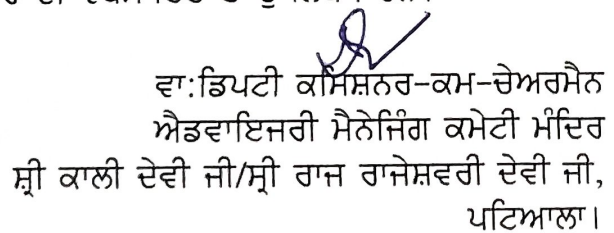 ਵਾ:ਡਿਪਟੀ ਕਮਿਸ਼ਨਰ-ਕਮ-ਚੇਅਰਮੈਨ
ਐਡਵਾਇਜਰੀ ਮੈਨੇਜਿੰਗ ਕਮੇਟੀ ਮੰਦਿਰ
ਸ਼੍ਰੀ ਕਾਲੀ ਦੇਵੀ ਜੀ/ਸ੍ਰੀ ਰਾਜ ਰਾਜੇਸ਼ਵਰੀ ਦੇਵੀ ਜੀ,
ਪਟਿਆਲਾ।